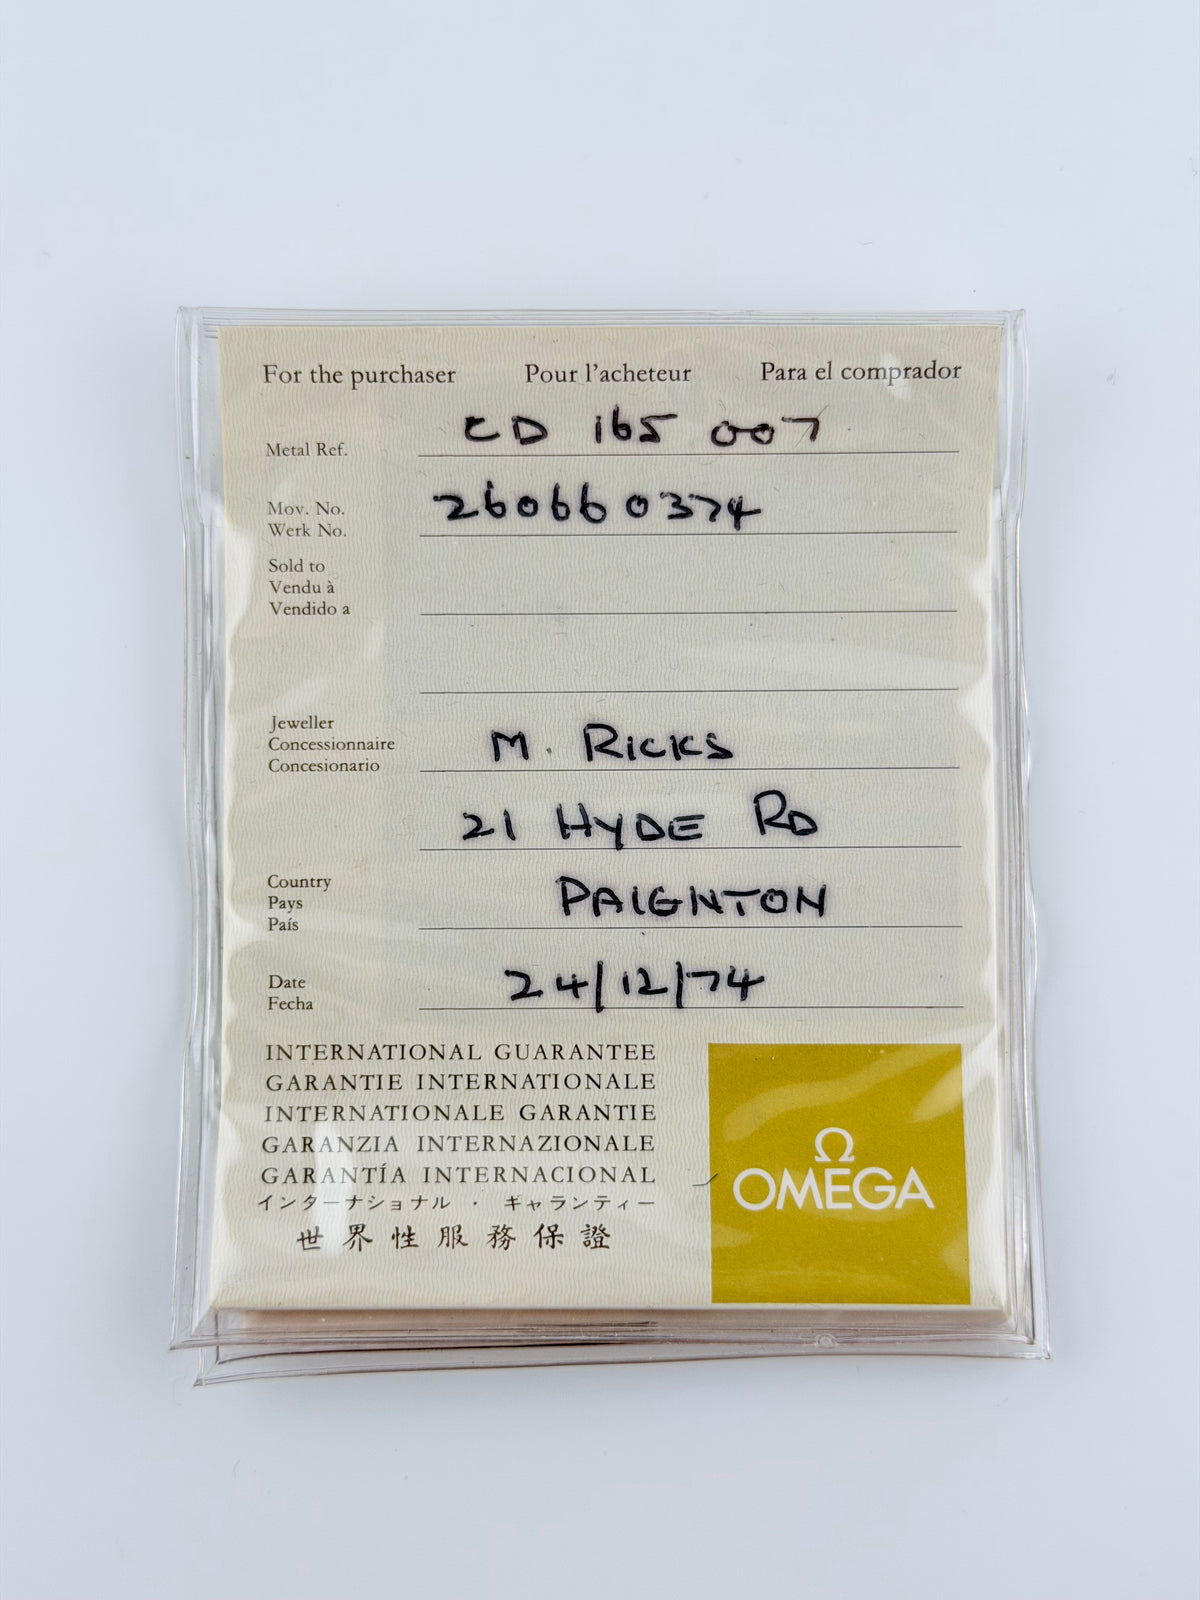 For the purchaser Pour l'acheteur Para el comprador
Metal Ref. CD 165 007
Mov. No. 260660374
Werk No.
Sold to
Vendu à
Vendido a
Jeweller
Concessionnaire M. RICKS
Concesionario
21 HYDE RD
Country
Pays PAIGNTON
País
Date 24/12/74
Fecha
INTERNATIONAL GUARANTEE
GARANTIE INTERNATIONALE
INTERNATIONALE GARANTIE
GARANZIA INTERNAZIONALE
GARANTÍA INTERNACIONAL
インターナショナル・ギャランティー
世界性服務保證
Ω
OMEGA